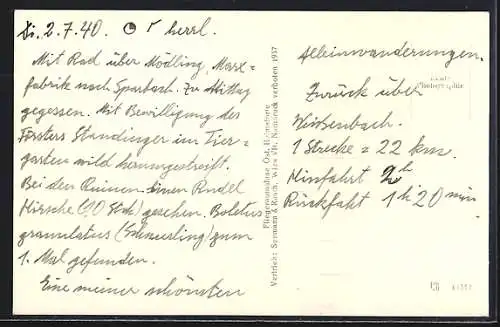 Di. 2.7.40. herrl.
Mit Rad über Mödling, Marx-
fabrik nach Sparbach. Zu Mittag
gegessen. Mit Bewilligung des
Försters Standinger im Tier-
garten wild herumgestreift.
Bei den Ruinen einen Rudel
Hirsche (10 Stck) gesehen. Boletus
granulatus (Schmerling) zum
1. Mal gefunden.
Eine meiner schönsten
Alleinwanderungen.
Zurück über
Weissenbach.
1 Strecke = 22 km.
Hinfahrt 2h
Rückfahrt 1h 20 min
Fliegeraufnahme Öst.
Vertrieb: Sermann & Koch, Wien VII. Nachdruck verboten. 1937
Photographie